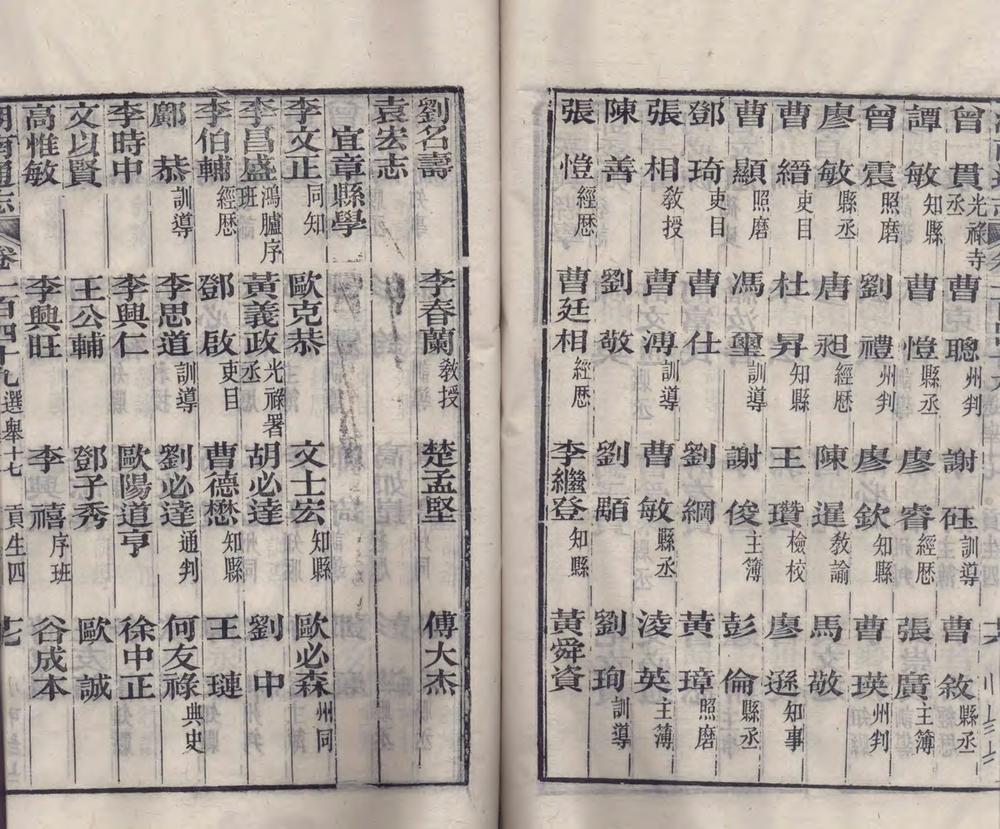 曾貫光祿寺丞 曹聰州判 謝砡訓導 曹敘縣丞
譚敏知縣 曹愷縣丞 廖睿經歷 張廣主簿
曾震照磨 劉禮州判 廖欽知縣 曹瑛州判
廖敏縣丞 唐昶經歷 陳暹敎諭 馬敬
曹縉吏目 杜昇知縣 王瓚檢校 廖遜知事
曹顯照磨 馮璽訓導 謝俊主簿 彭倫縣丞
鄧琦吏目 曹仕 劉綱 黃璋照磨
張相敎授 曹溥訓導 曹敏縣丞 淩英主簿
陳善 劉敬 劉顒 劉珣訓導
張愷經歷 曹廷相經歷 李繼登知縣 黃舜資
劉名壽 李春蘭敎授 楚孟堅 傅大杰
袁宏志
宜章縣學
李文正同知 歐克恭 文士宏知縣 歐必森州同
李昌盛鴻臚序班 黃義政光祿署丞 胡必達 劉中
李伯輔經歷 鄧啟吏目 曹德懋知縣 王璉
鄺恭訓導 李思道訓導 劉必達通判 何友祿典史
李時中 李興仁 歐陽道亨 徐中正
文以賢 王公輔 鄧子秀 歐誠
高惟敏 李興旺 李禧序班 谷成本
湖南通志 卷一百四十九 選舉十七 貢生四 十七